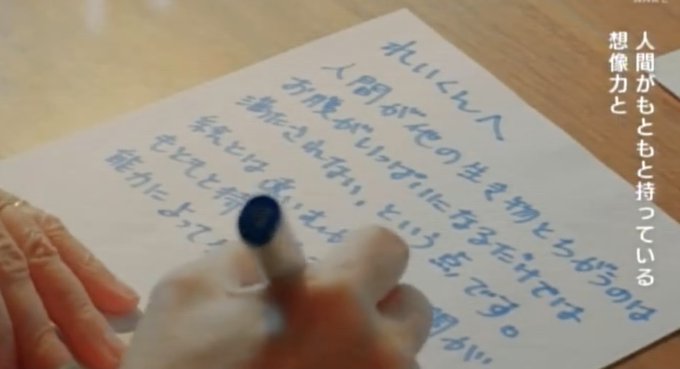 れいくんへ
人間が他の生き物とちがうのは
お腹がいっぱいになるだけでは
満たされない、という点です。
絵とは違い 間が
もともと持
能力によって
人間がもともと持っている
想像力と